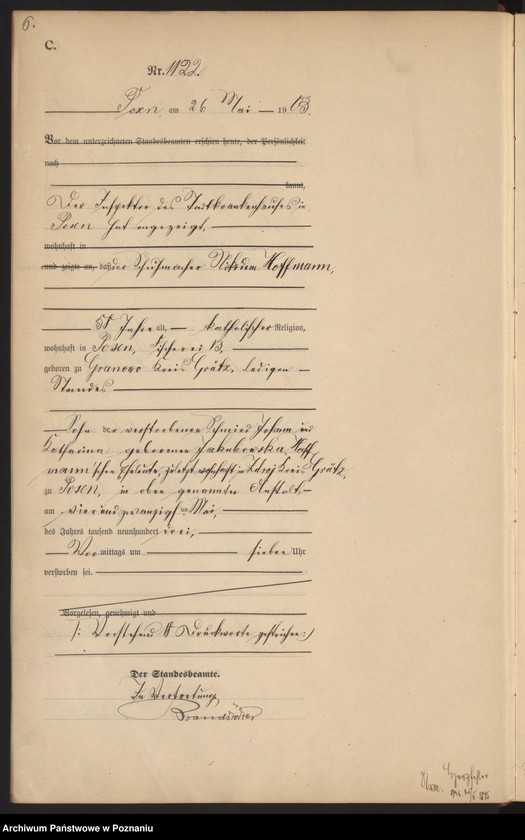 6.
C.
Nr. 1122.
Posen, am 26 Mai 1903.
Vor dem unterzeichneten Standesbeamten erschien heute, der Persönlichkeit
nach
kannt,
Der Inspektor des Stadtkrankenhauses in
Posen hat angezeigt,
wohnhaft in
und zeigte an, daß der Schuhmacher Hoffmann,
Jahre alt, katholischer Religion,
wohnhaft in Posen, Fischerei 13,
geboren zu Granowo Kreis Grätz, ledigen
Standes
Sohn der verstorbenen Schmied Johann und
Katharina geborenen Jakubowska, Hoff
mann'schen Eheleute, zuletzt wohnhaft in Zdroj Kreis Grätz,
zu Posen, in oben genannter Anstalt,
am vierundzwanzigsten Mai,
des Jahres tausend neunhundert drei,
Vormittags um sieben Uhr
verstorben sei.
Vorgelesen, genehmigt und
/: Vorstehend Druckworte gestrichen :/
Der Standesbeamte.
In Vertretung
Archiwum Państwowe w Poznaniu